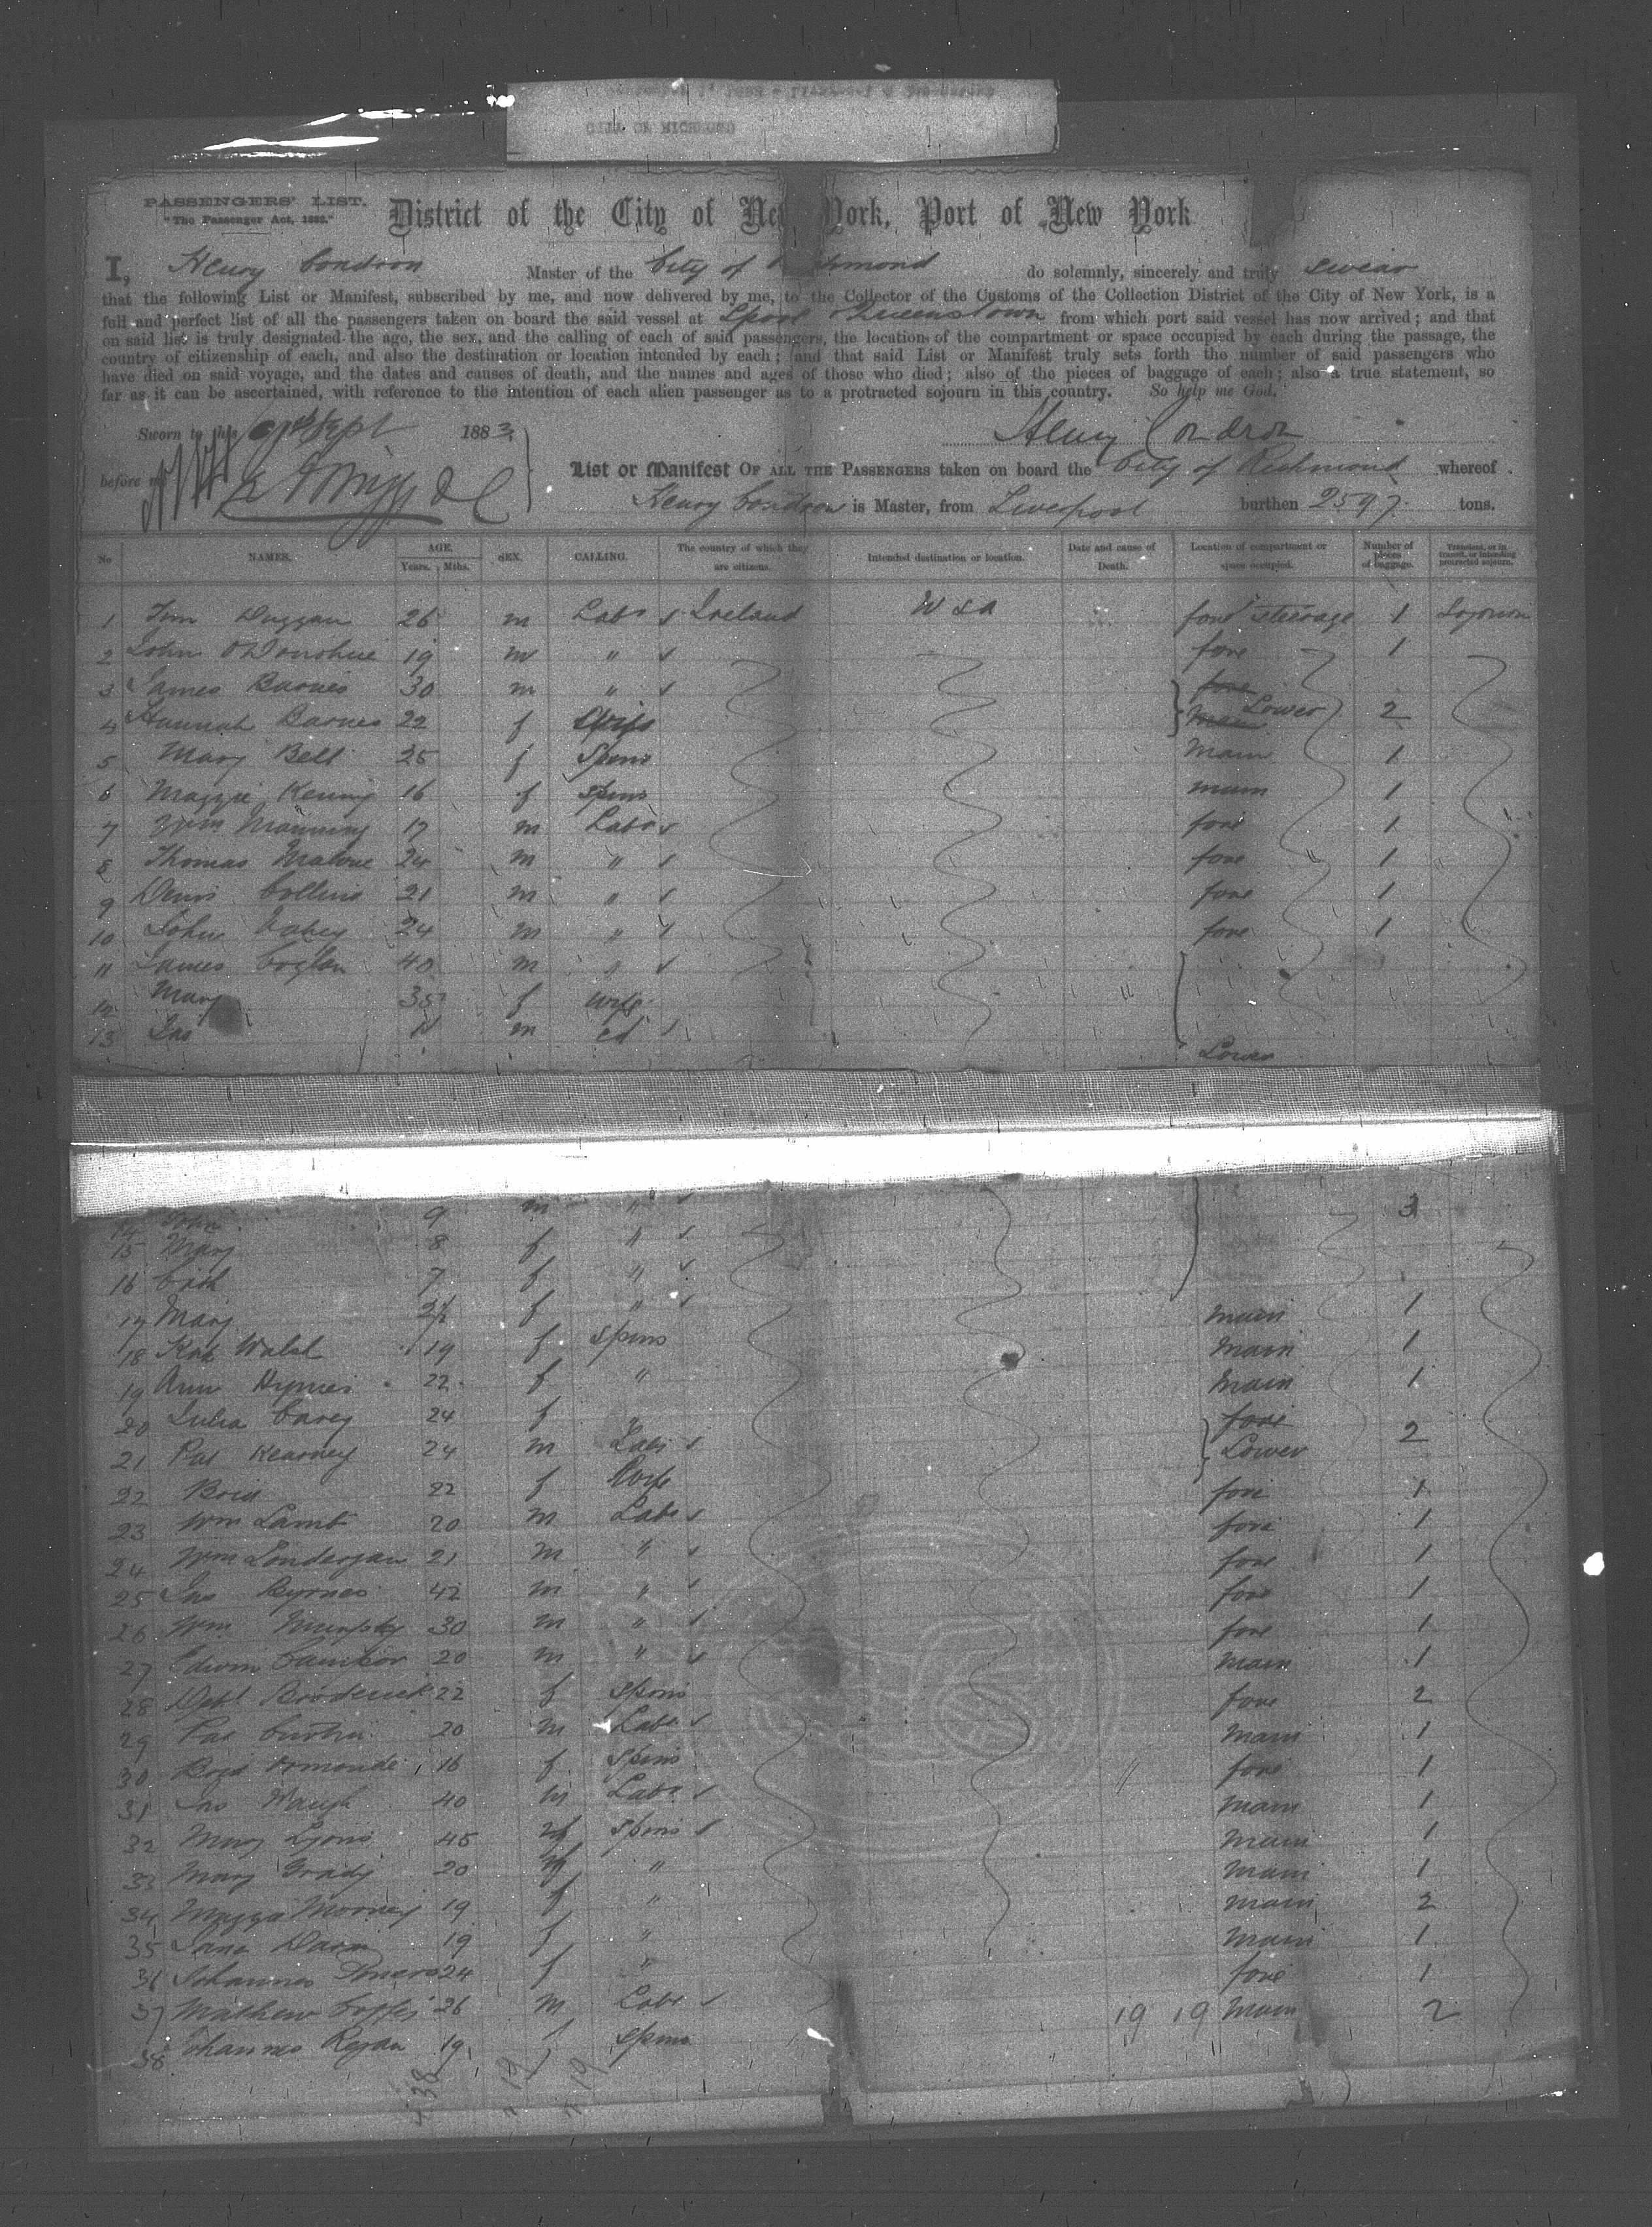 CITY OF RICHMOND
PASSENGERS' LIST.
"The Passenger Act, 1882."
District of the City of New York, Port of New York
I, Henry Condron Master of the City of Richmond do solemnly, sincerely and truly swear
that the following List or Manifest, subscribed by me, and now delivered by me, to the Collector of the Customs of the Collection District of the City of New York, is a
full and perfect list of all the passengers taken on board the said vessel at Lpool Queenstown from which port said vessel has now arrived; and that
on said list is truly designated the age, the sex, and the calling of each of said passengers, the location of the compartment or space occupied by each during the passage, the
country of citizenship of each, and also the destination or location intended by each; and that said List or Manifest truly sets forth the number of said passengers who
have died on said voyage, and the dates and causes of death, and the names and ages of those who died; also of the pieces of baggage of each; also a true statement, so
far as it can be ascertained, with reference to the intention of each alien passenger as to a protracted sojourn in this country. So help me God.
Sworn to this Sept 1883
Henry Condron
before me
List or Manifest OF ALL THE PASSENGERS taken on board the City of Richmond whereof
Henry Condron is Master, from Liverpool burthen 2597 tons.
No NAMES. AGE. Years. Mths. SEX. CALLING. The country of which they are citizens. Intended destination or location. Date and cause of Death. Location of compartment or space occupied. Number of pieces of baggage. Transient, or in transit, or intending protracted sojourn.
1 Tim Duggan 26 m Labr Ireland USA fore steerage 1 Sojourn
2 John O'Donohue 19 m " fore 1
3 James Barnes 30 m " fore
4 Hannah Barnes 22 f Wife Main Lower 2
5 Mary Bell 25 f Spins Main 1
6 Maggie 16 f Spins main 1
7 Wm Manning 17 m Labr fore 1
8 Thomas Malone 24 m " fore 1
9 Denis Collins 21 m " fore 1
10 John 24 m " fore 1
11 James Coglan 40 m "
12 Mary 35 f wife
13 Jas 11 m cd
Lower
14 John 9 m " 3
15 Mary 8 f "
16 Cath 7 f "
17 Mary f " main 1
18 Kate Walsh 19 f Spins Main 1
19 Ann Hynes 22 f " Main 1
20 Julia Carey 24 f fore
21 Pat Kearney 24 m Labr Lower 2
22 Brid 22 f Wife fore 1
23 Wm Lamb 20 m Labr fore 1
24 Wm Londergan 21 m " fore 1
25 Jas Byrnes 42 m " fore 1
26 Wm Murphy 30 m " fore 1
27 Edwin 20 m " main 1
28 Broderick 22 f Spins fore 2
29 Pat 20 m Labr Main 1
30 Brid Ormonde 16 f Spins fore 1
31 Jas Waugh 40 m Labr main 1
32 Mary Lyons 45 f Spins Main 1
33 Mary Grady 20 f " Main 1
34 Maggie Mooney 19 f " main 2
35 Jane 19 f " Main 1
36 Johanna 24 f " fore 1
37 Mathew 26 m Labr 19 19 Main 2
38 Johanna Regan 19 f Spins
38 19 19